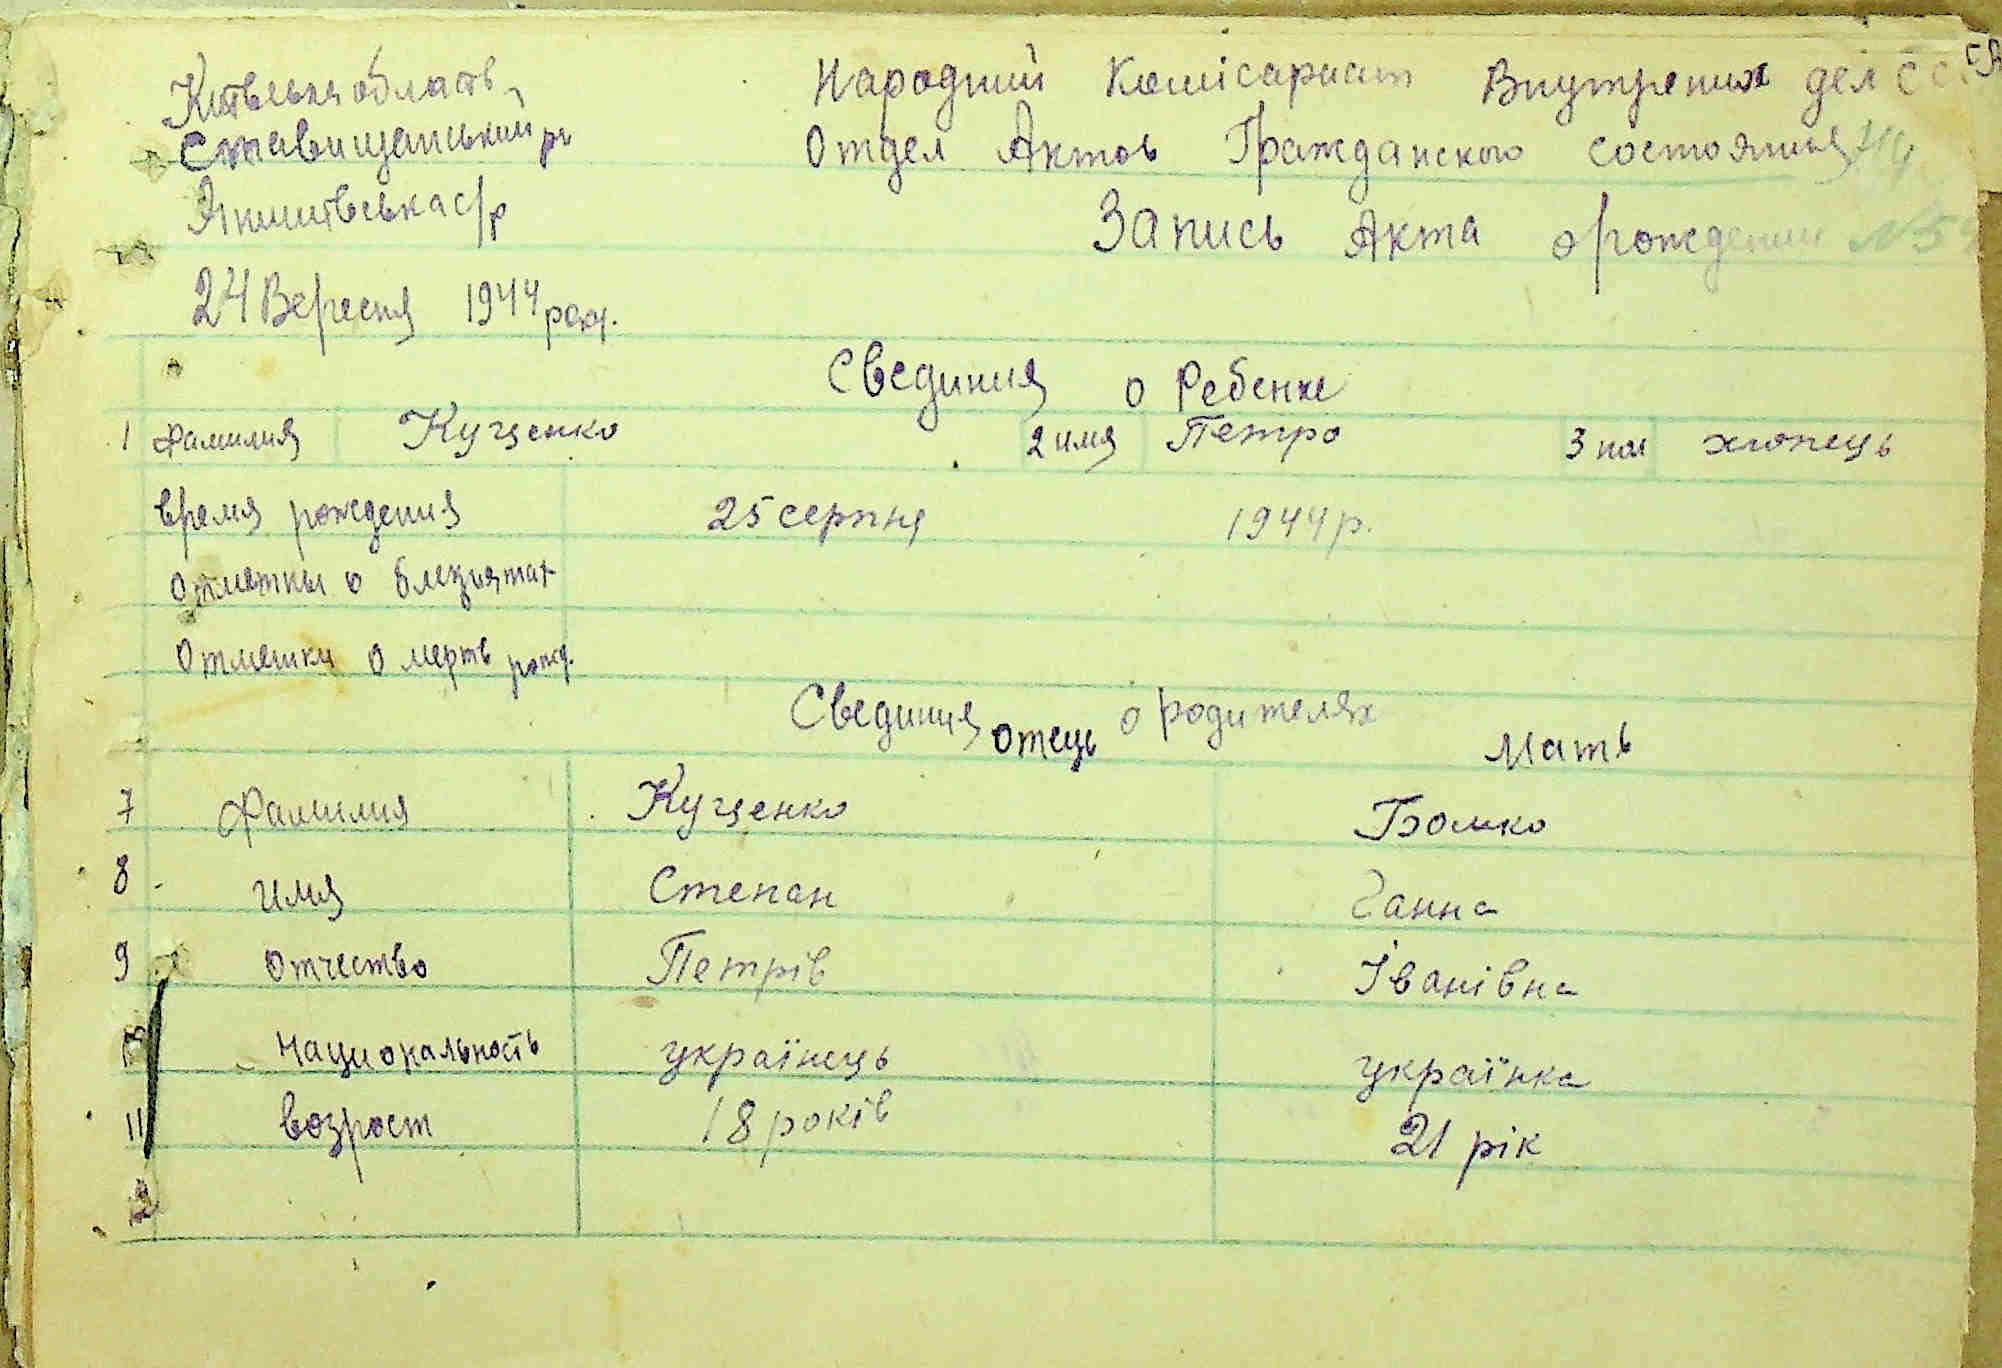 Київська область
Ставищанський р-н
Янишівська с/р
24 Вересня 1944 року.
Народний Комісариат Внутрених дел С С С Р
Отдел Актов Гражданского состояния
Запись Акта о рождении №5
Свединия о Ребенке
1 Фамилия Куценко 2 имя Петро 3 пол хлопець
время рождения 25 серпня 1944 р.
Отметки о близнятах
Отметки о мертв рожд.
Свединия о родителях
Отець Мать
7 Фамилия Куценко Бомко
8 имя Степан Ганна
9 Отчество Петрів Іванівна
Национальность українець українка
11 возраст 18 років 21 рік
12